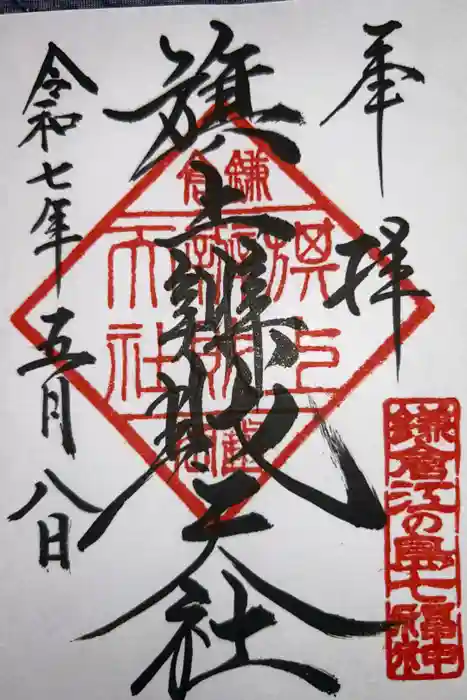 奉拝
旗上辨財天社
令和七年五月八日
鎌倉
旗上
辨財
天社
鎌倉江の島七福神